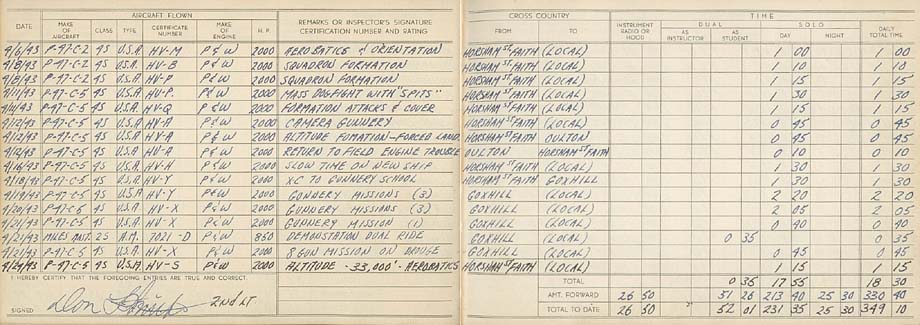 AIRCRAFT FLOWN
DATE MAKE OF AIRCRAFT CLASS TYPE CERTIFICATE NUMBER MAKE OF ENGINE H.P. REMARKS OR INSPECTOR'S SIGNATURE CERTIFICATION NUMBER AND RATING
CROSS COUNTRY TIME
FROM TO INSTRUMENT RADIO OR HOOD DUAL AS INSTRUCTOR AS STUDENT SOLO DAY NIGHT DAILY TOTAL TIME
4/6/43 P-47-C-2 4S U.S.A. HV-M P&W 2000 AEROBATICS & ORIENTATION HORSHAM ST FAITH (LOCAL) 1 00 1 00
4/8/43 P-47-C-2 4S U.S.A. HV-B P&W 2000 SQUADRON FORMATION HORSHAM ST FAITH (LOCAL) 1 10 1 10
4/8/43 P-47-C-2 4S U.S.A. HV-P P&W 2000 SQUADRON FORMATION HORSHAM ST FAITH (LOCAL) 1 15 1 15
4/11/43 P-47-C-5 4S U.S.A. HV-P. P&W 2000 MASS DOGFIGHT WITH "SPITS" HORSHAM ST FAITH (LOCAL) 1 30 1 30
4/11/43 P-47-C-5 4S U.S.A. HV-Q P&W 2000 FORMATION ATTACKS & COVER HORSHAM ST FAITH (LOCAL) 1 15 1 15
4/12/43 P-47-C-5 4S U.S.A. HV-A P&W 2000 CAMERA GUNNERY HORSHAM ST FAITH (LOCAL) 0 45 0 45
4/12/43 P-47-C-5 4S U.S.A. HV-A P&W 2000 ALTITUDE FUMATION-FORCED LAND. HORSHAM ST FAITH OULTON 0 45 0 45
4/12/43 P-47-C-5 4S U.S.A. HV-A P&W 2000 RETURN TO FIELD ENGINE TROUBLE OULTON HORSHAM ST FAITH 0 10 0 10
4/16/43 P-47-C-5 4S U.S.A. HV-H P&W 2000 SLOW TIME ON NEW SHIP HORSHAM ST FAITH (LOCAL) 1 30 1 30
4/18/43 P-47-C-5 4S U.S.A. HV-Y P&W 2000 XC TO GUNNERY SCHOOL HORSHAM ST FAITH GOXHILL 1 30 1 30
4/19/43 P-47-C-5 4S U.S.A. HV-Y P&W 2000 GUNNERY MISSIONS (3) GOXHILL (LOCAL) 2 20 2 20
4/20/43 P-47-C-5 4S U.S.A. HV-X P&W 2000 GUNNERY MISSIONS (3) GOXHILL (LOCAL) 2 05 2 05
4/21/43 P-47-C-5 4S U.S.A. HV-X P&W 2000 GUNNERY MISSION (1) GOXHILL (LOCAL) 0 40 0 40
4/21/43 MILES 2S A.M. 7021-D P&W 850 DEMONSTATION DUAL RIDE GOXHILL (LOCAL) 0 35 0 35
4/21/43 P-47-C-5 4S U.S.A. HV-X P&W 2000 8 GUN MISSION ON DROUGE GOXHILL (LOCAL) 0 45 0 45
4/29/43 P-47-C-5 4S U.S.A. HV-S P&W 2000 ALTITUDE - 33,000' - AEROBATICS HORSHAM ST FAITH (LOCAL) 1 15 1 15
I HEREBY CERTIFY THAT THE FOREGOING ENTRIES ARE TRUE AND CORRECT.
SIGNED Don 2nd LT
TOTAL 0 35 17 55 18 30
AMT. FORWARD 26 50 51 26 213 40 25 30 330 40
TOTAL TO DATE 26 50 52 01 231 35 25 30 349 10